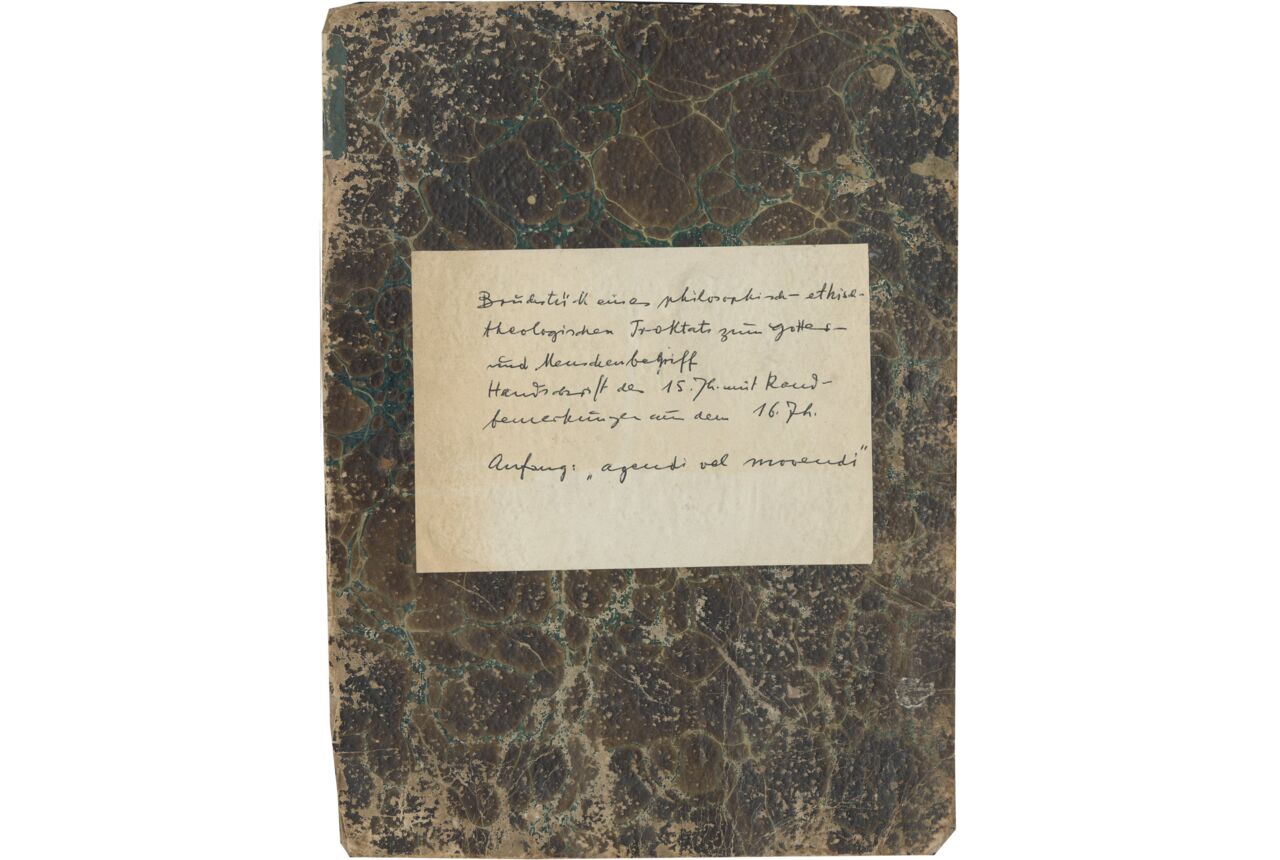 Bruchstück eines philosophisch-ethisch-
theologischen Traktats zum Gottes-
und Menschenbegriff
Handschrift des 15. Jh. mit Rand-
bemerkungen aus dem 16. Jh.
Anfang: „agendi vel movendi"